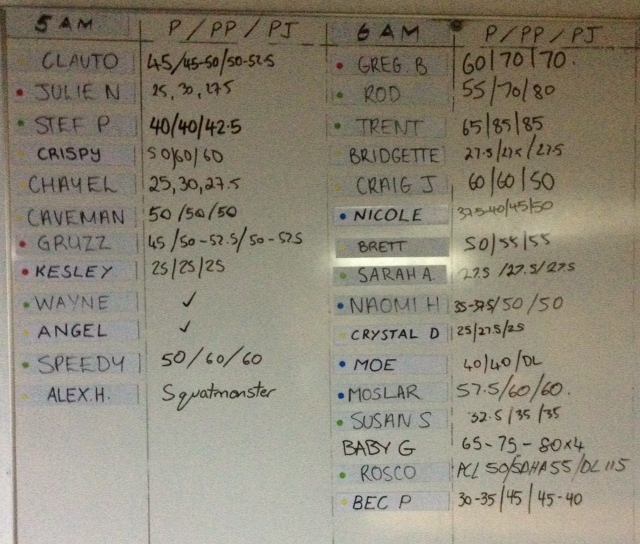 5 AM P / PP / PJ
CLAUTO 45/45-50/50-52.5
JULIE N 25, 30, 27.5
STEF P 40/40/42.5
CRISPY 50/60/60
CHAYEL 25,30,27.5
CAVEMAN 50/50/50
GRUZZ 45/50-52.5/50-52.5
KESLEY 25/25/25
WAYNE ✓
ANGEL ✓
SPEEDY 50/60/60
ALEX.H. Squatmonster
6 AM P/PP/PJ
GREG. B 60/70/70.
ROD 55/70/80
TRENT 65/85/85
BRIDGETTE 27.5/27.5/27.5
CRAIG J 60/60/50
NICOLE 37.5-40/45/50
BRETT 50/55/55
SARAH A. 27.5/27.5/27.5
NAOMI H 35-37.5/50/50
CRYSTAL D 25/27.5/25
MOE 40/40/DL
MOSLAR 57.5/60/60.
SUSAN S 32.5/35/35
BABY G 65-75-80x4
ROSCO PCL 50/SDHA 55/DL 115
BEC P 30-35/45/45-40